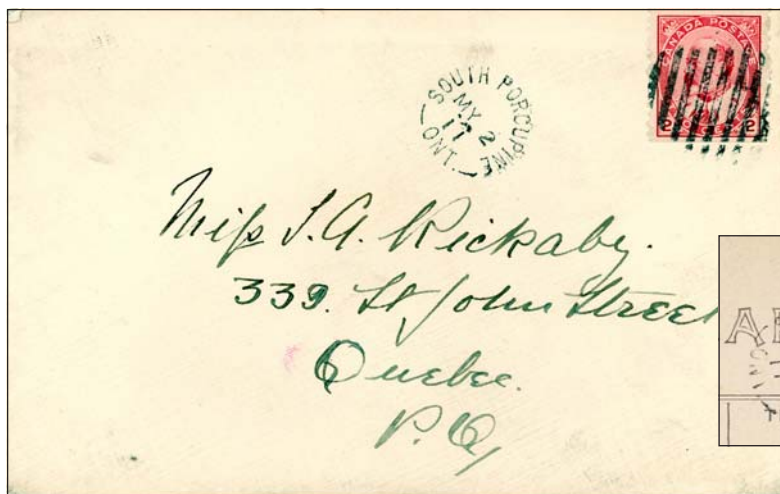 CANADA POSTAGE
2 CENTS 2
SOUTH PORCUPINE
MY 2
11
ONT
Miss S. A. Rickaby.
339. St John Street
Quebec.
P. Q,